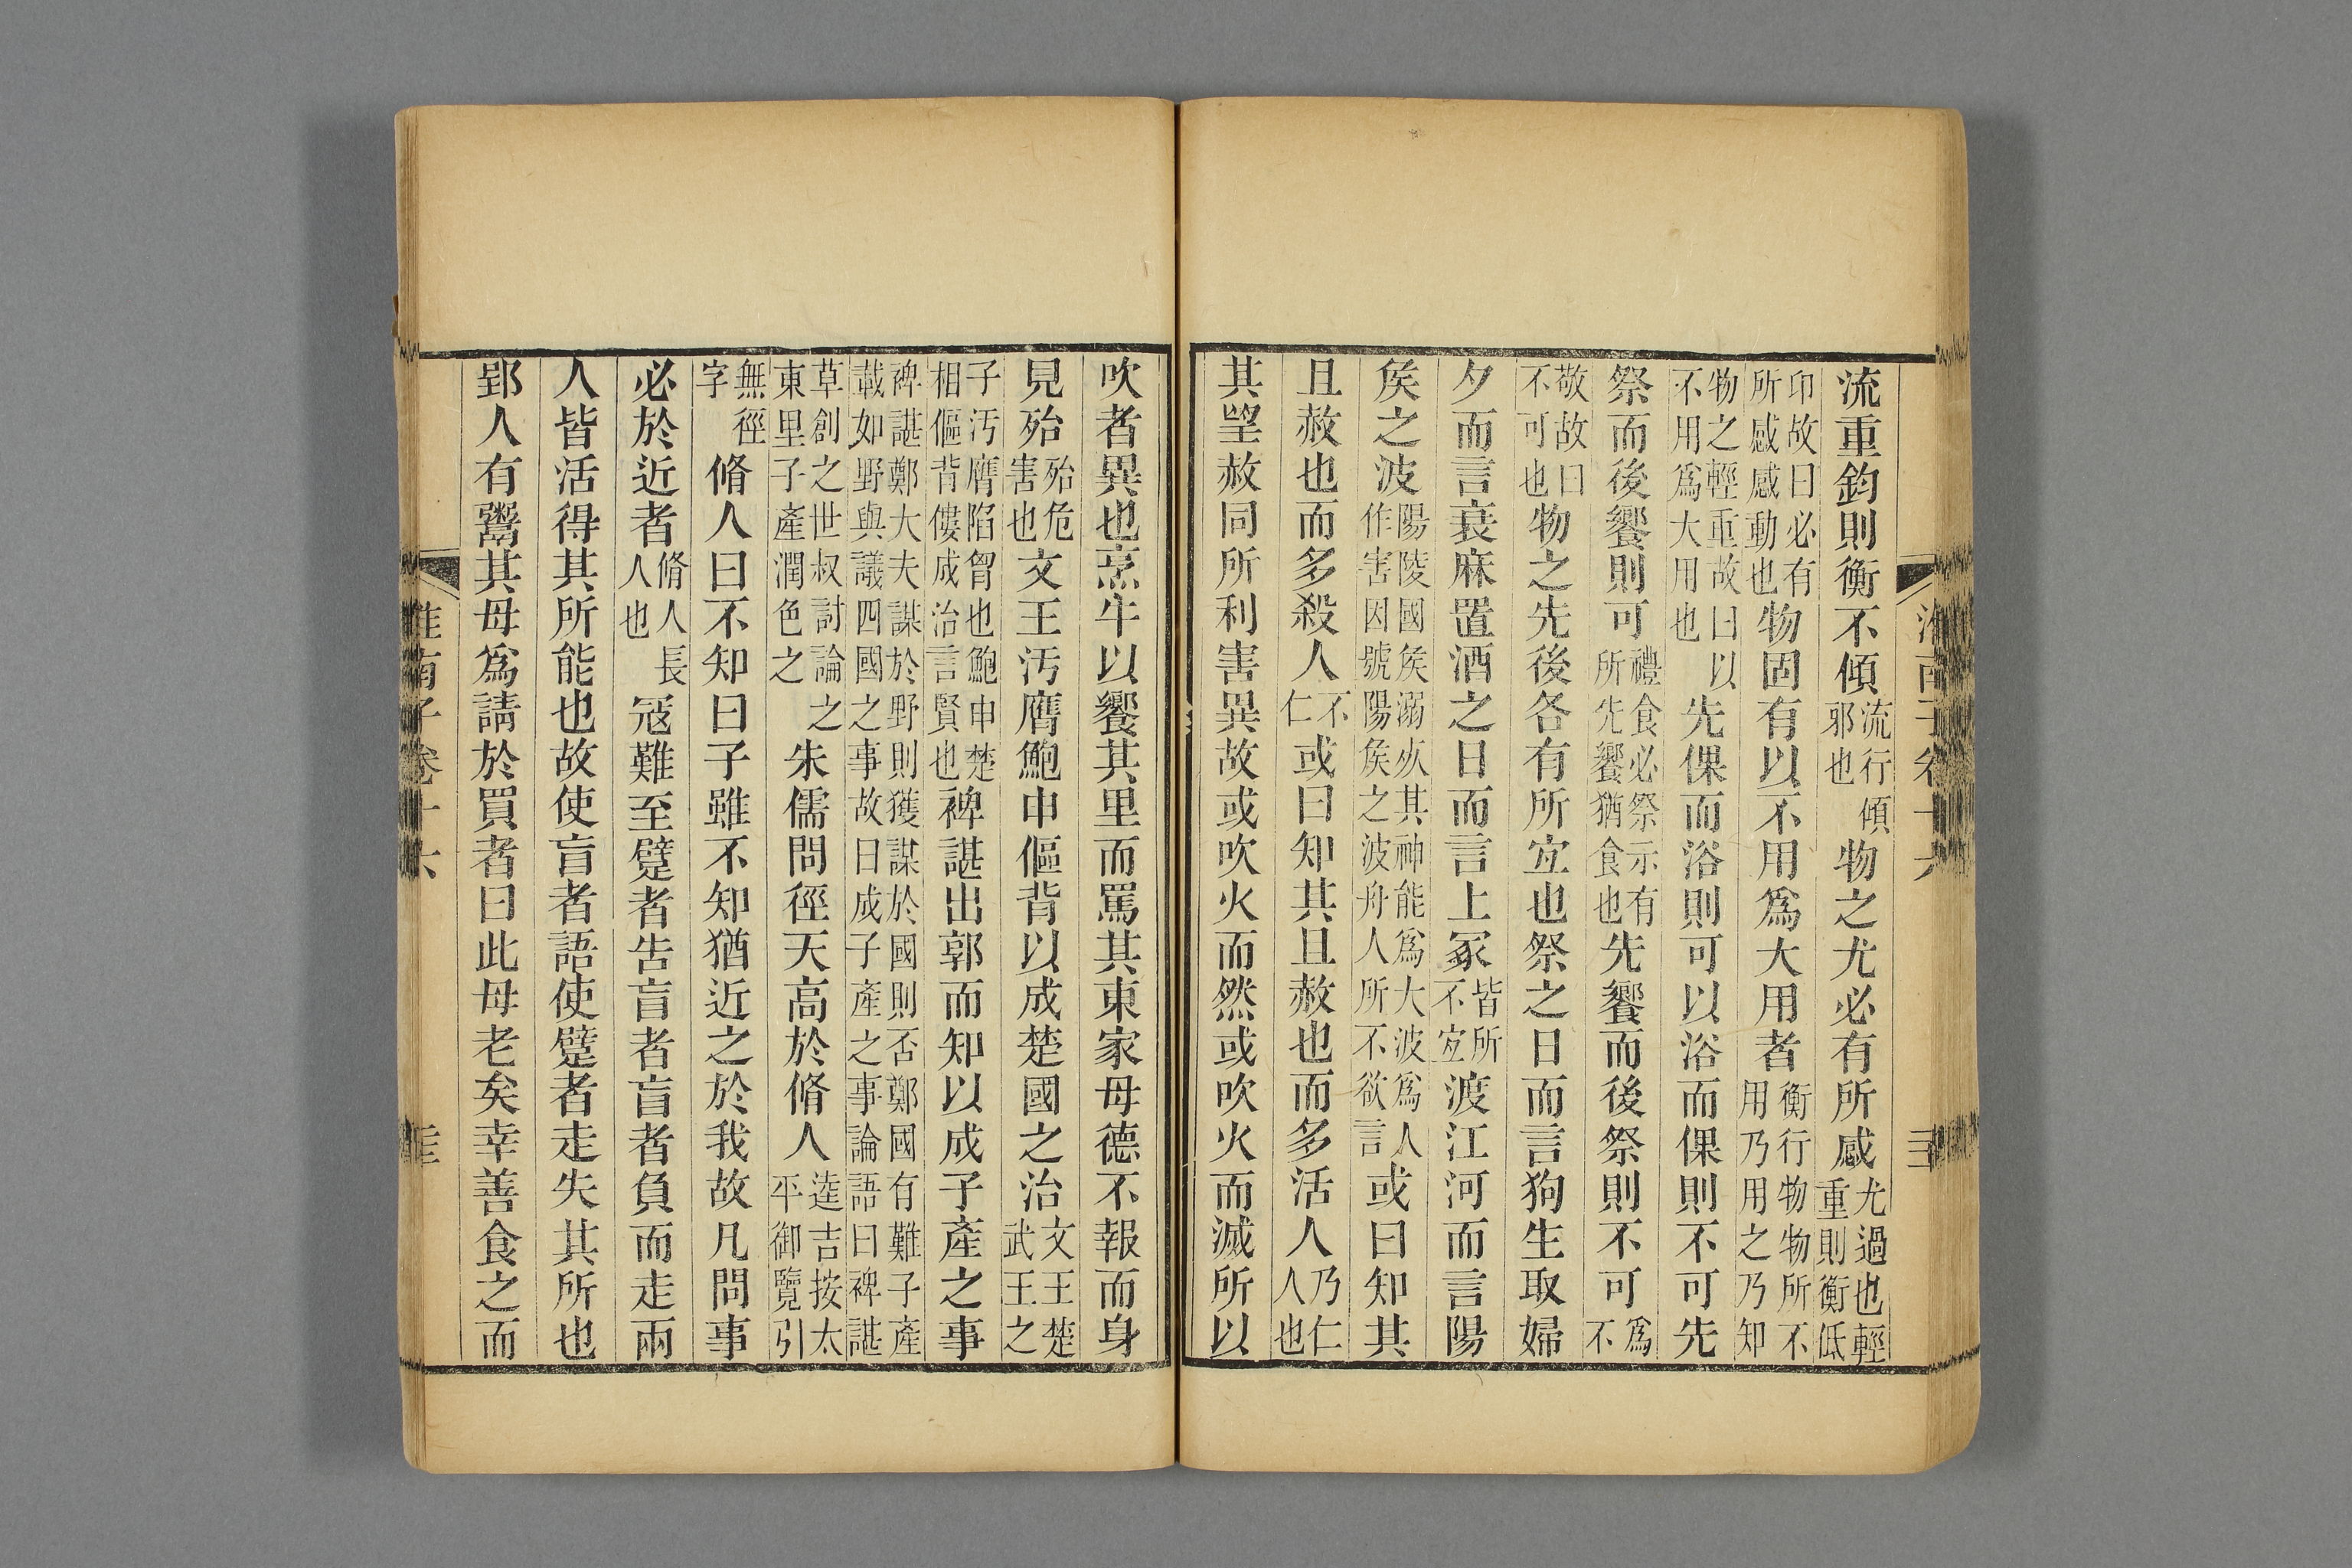 流重鈞則衡不傾流行傾邪也物之尤必有所感尤過也輕重則衡低
卬故曰必有所感感動也物固有以不用爲大用者衡行物物所不用乃用之乃知
物之輕重故曰以不用爲大用也先倮而浴則可以浴而倮則不可先
祭而後饗則可禮食必祭示有所先饗猶食也先饗而後祭則不可爲不
敬故曰不可也物之先後各有所宐也祭之日而言狗生取婦
夕而言衰麻置酒之日而言上冢皆所不宐渡江河而言陽
矦之波陽陵國矦溺死其神能爲大波爲人作害因號陽矦之波舟人所不欲言或曰知其
且赦也而多殺人不仁或曰知其且赦也而多活人乃仁人也
其望赦同所利害異故或吹火而然或吹火而滅所以
吹者異也烹牛以饗其里而罵其東家母德不報而身
見殆殆危害也文王汚膺鮑申傴背以成楚國之治文王楚武王之
子汚膺陷胷也鮑申楚相傴背僂成治言賢也裨諶出郭而知以成子產之事
裨諶鄭大夫謀於野則獲謀於國則否鄭國有難子產載如野與議四國之事故曰成子產之事論語曰裨諶
草創之世叔討論之東里子產潤色之朱儒問徑天高於脩人逵吉按太平御覽引
無徑字脩人曰不知曰子雖不知猶近之於我故凡問事
必於近者脩人長人也寇難至躄者告盲者盲者負而走兩
人皆活得其所能也故使盲者語使躄者走失其所也
郢人有鬻其母爲請於買者曰此母老矣幸善食之而
淮南子卷十六